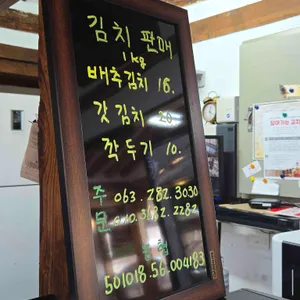 김치 판매
1kg
배추김치 16.
갓김치 20
깍두기 10.
주 063.282.3030
문 010.3182.2282
농협
501018.56.004183